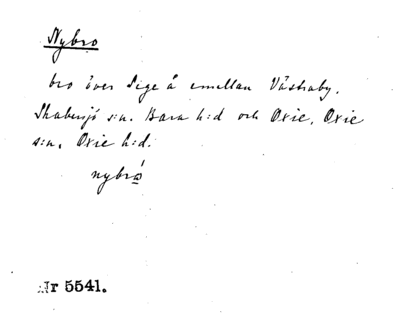 Nybro
bro över Sege å emellan Västraby,
Skabersjö s:n. Bara h:d och Oxie, Oxie
s:n, Oxie h:d.
nybro
Nr 5541.